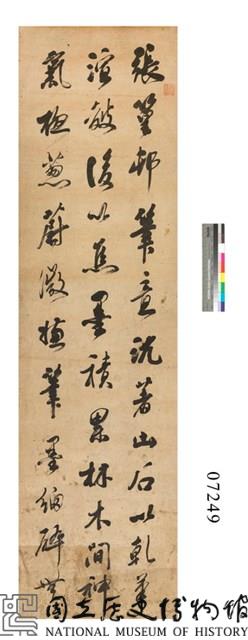 張篁邨筆意沉著山石以乾筆
渲皴後以焦墨積累林木間神
氣極葱蔚微嫌筆墨細碎與
07249
國立歷史博物館
NATIONAL MUSEUM OF HISTORY